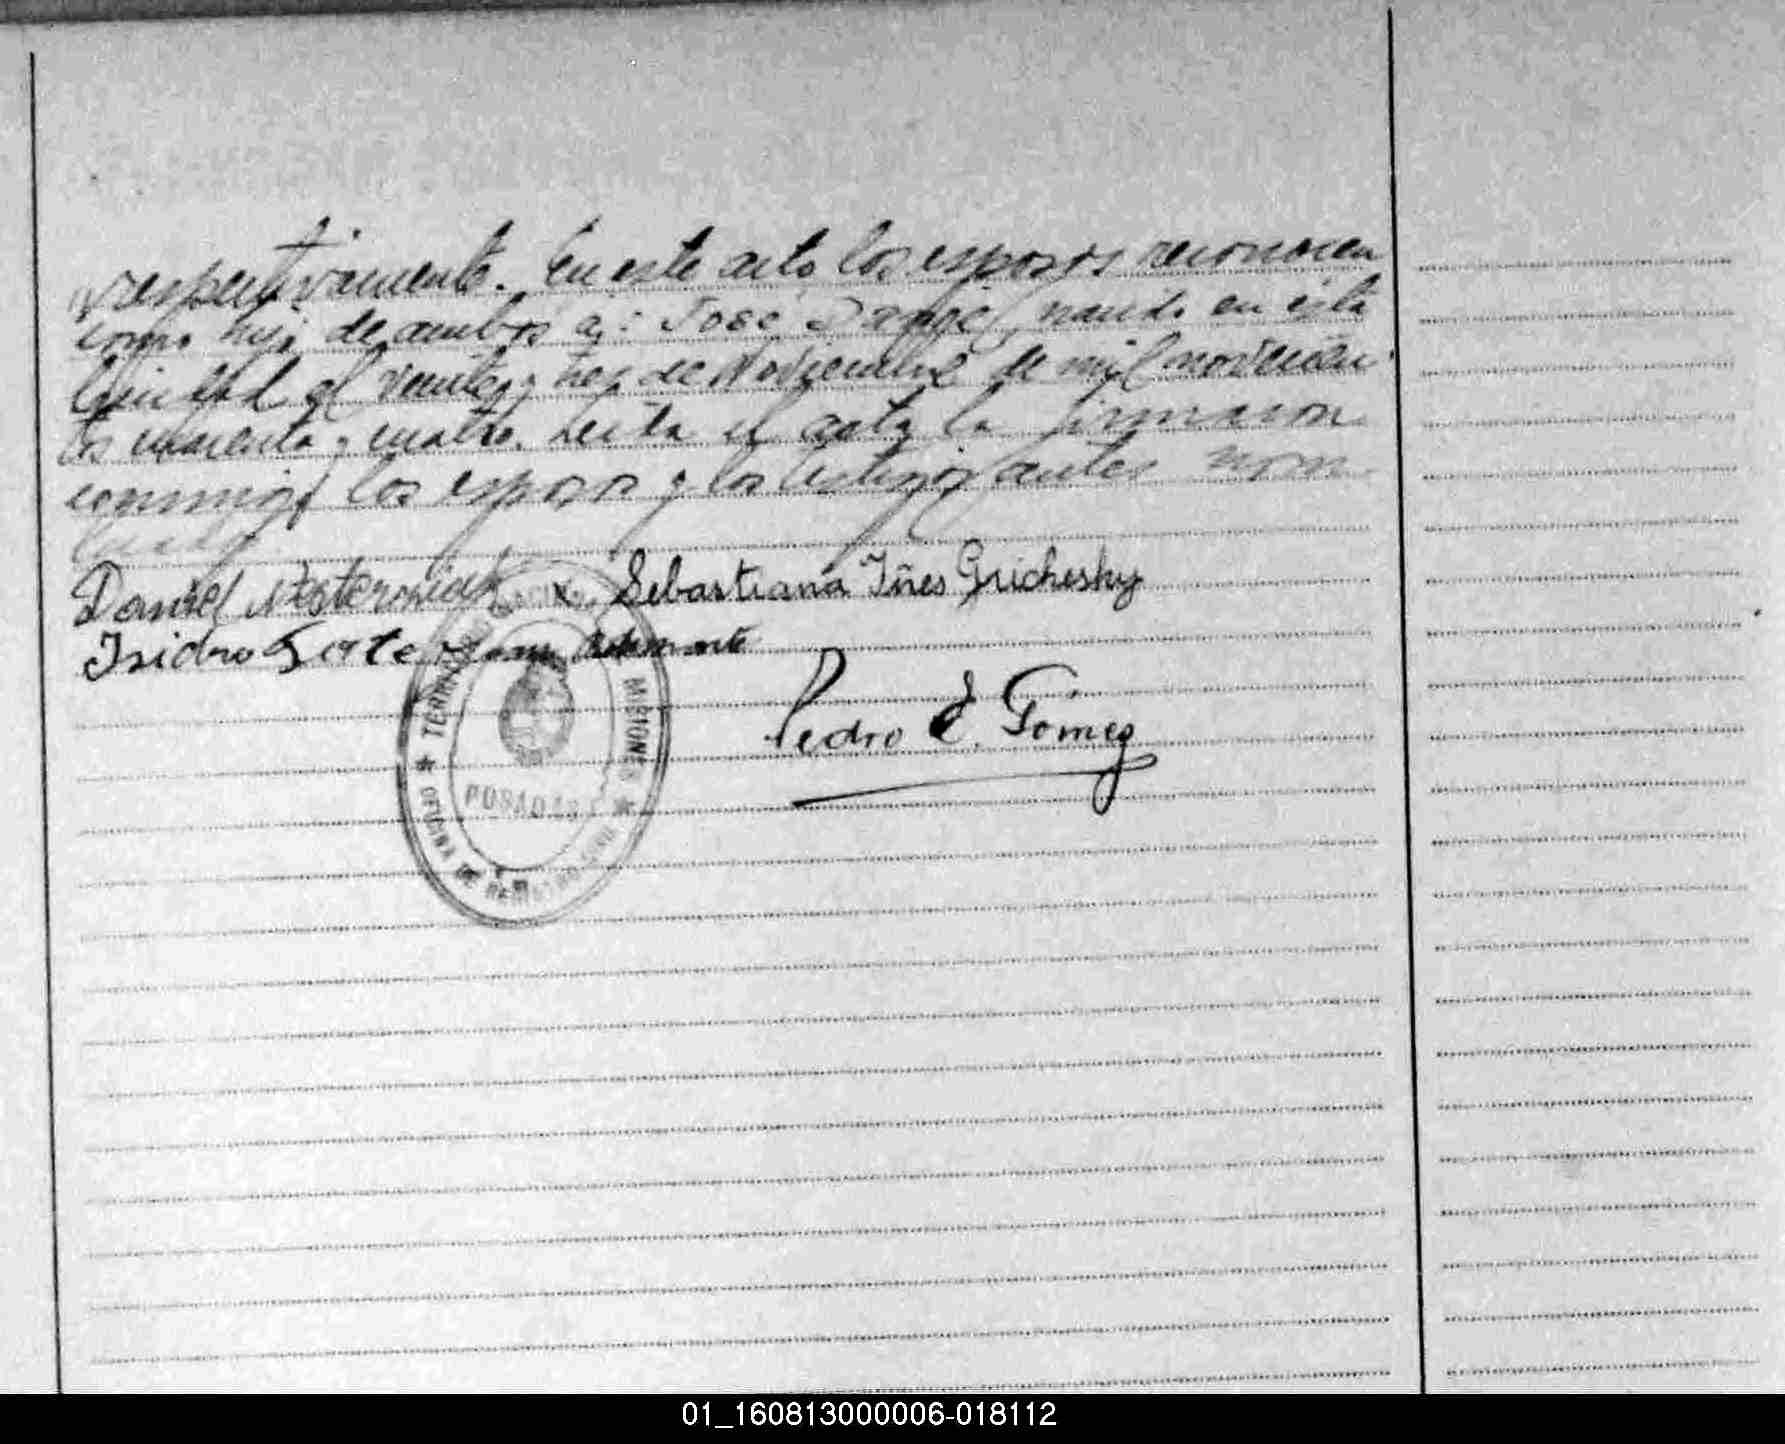 respectivamente. En este acto los esposos reconocen
como hijo de ambos a: José nacido en ésta
Ciudad el veinte y tres de Noviembre de mil novecien
tos cuarenta y cuatro. Leída el acta la firmaron
conmigo los esposos y los testigos antes nom
brados
Daniel Nesterchiak x. Sebastiana Iñes Gricheshy
Isidro
Pedro E. Gómez
TERRITORIO NACIONAL MISIONES
POSADAS
OFICINA DE REGISTRO CIVIL
01_160813000006-018112